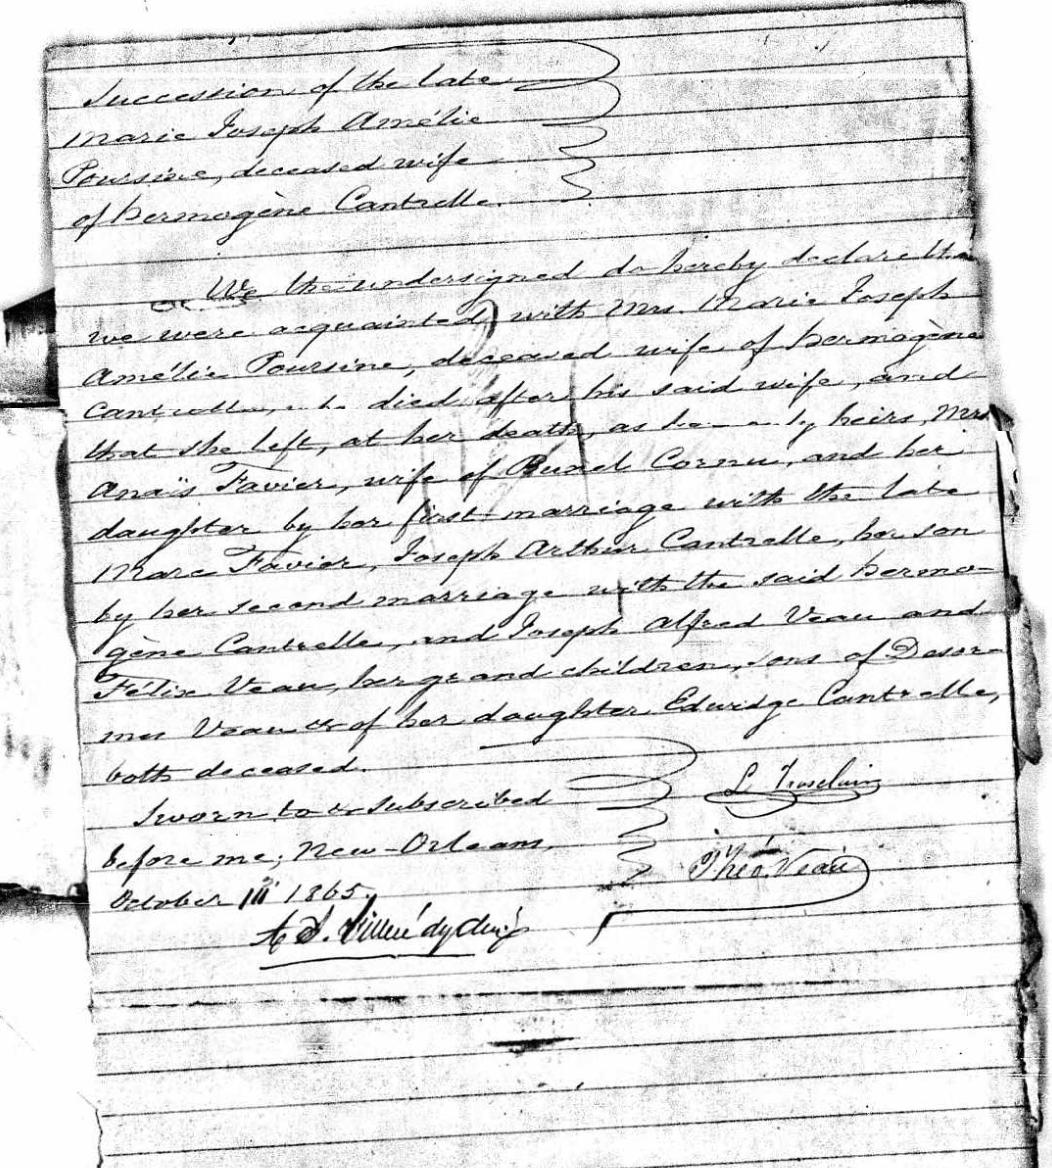 Succession of the late
Marie Joseph Amélie
Poursine, deceased wife
of hermogène Cantrelle.
We the undersigned do hereby declare th
we were acquainted with Mrs. Marie Joseph
Amélie Poursine, deceased wife of hermogène
Cantrelle, died after his said wife, and
that she left, at her death, as heirs, Mrs
Anaïs Favier, wife of Cornu, and her
daughter by her first marriage with the late
Marc Favier, Joseph Arthur Cantrelle, her son
by her second marriage with the said hermo-
gène Cantrelle, and Joseph Alfred Veau and
Félix Veau, her grand children, sons of Desor-
mes Veau & of her daughter Edwidge Cantrelle,
both deceased.
Sworn to & subscribed
before me, New-Orleans,
October 1865.
Théo. Veau